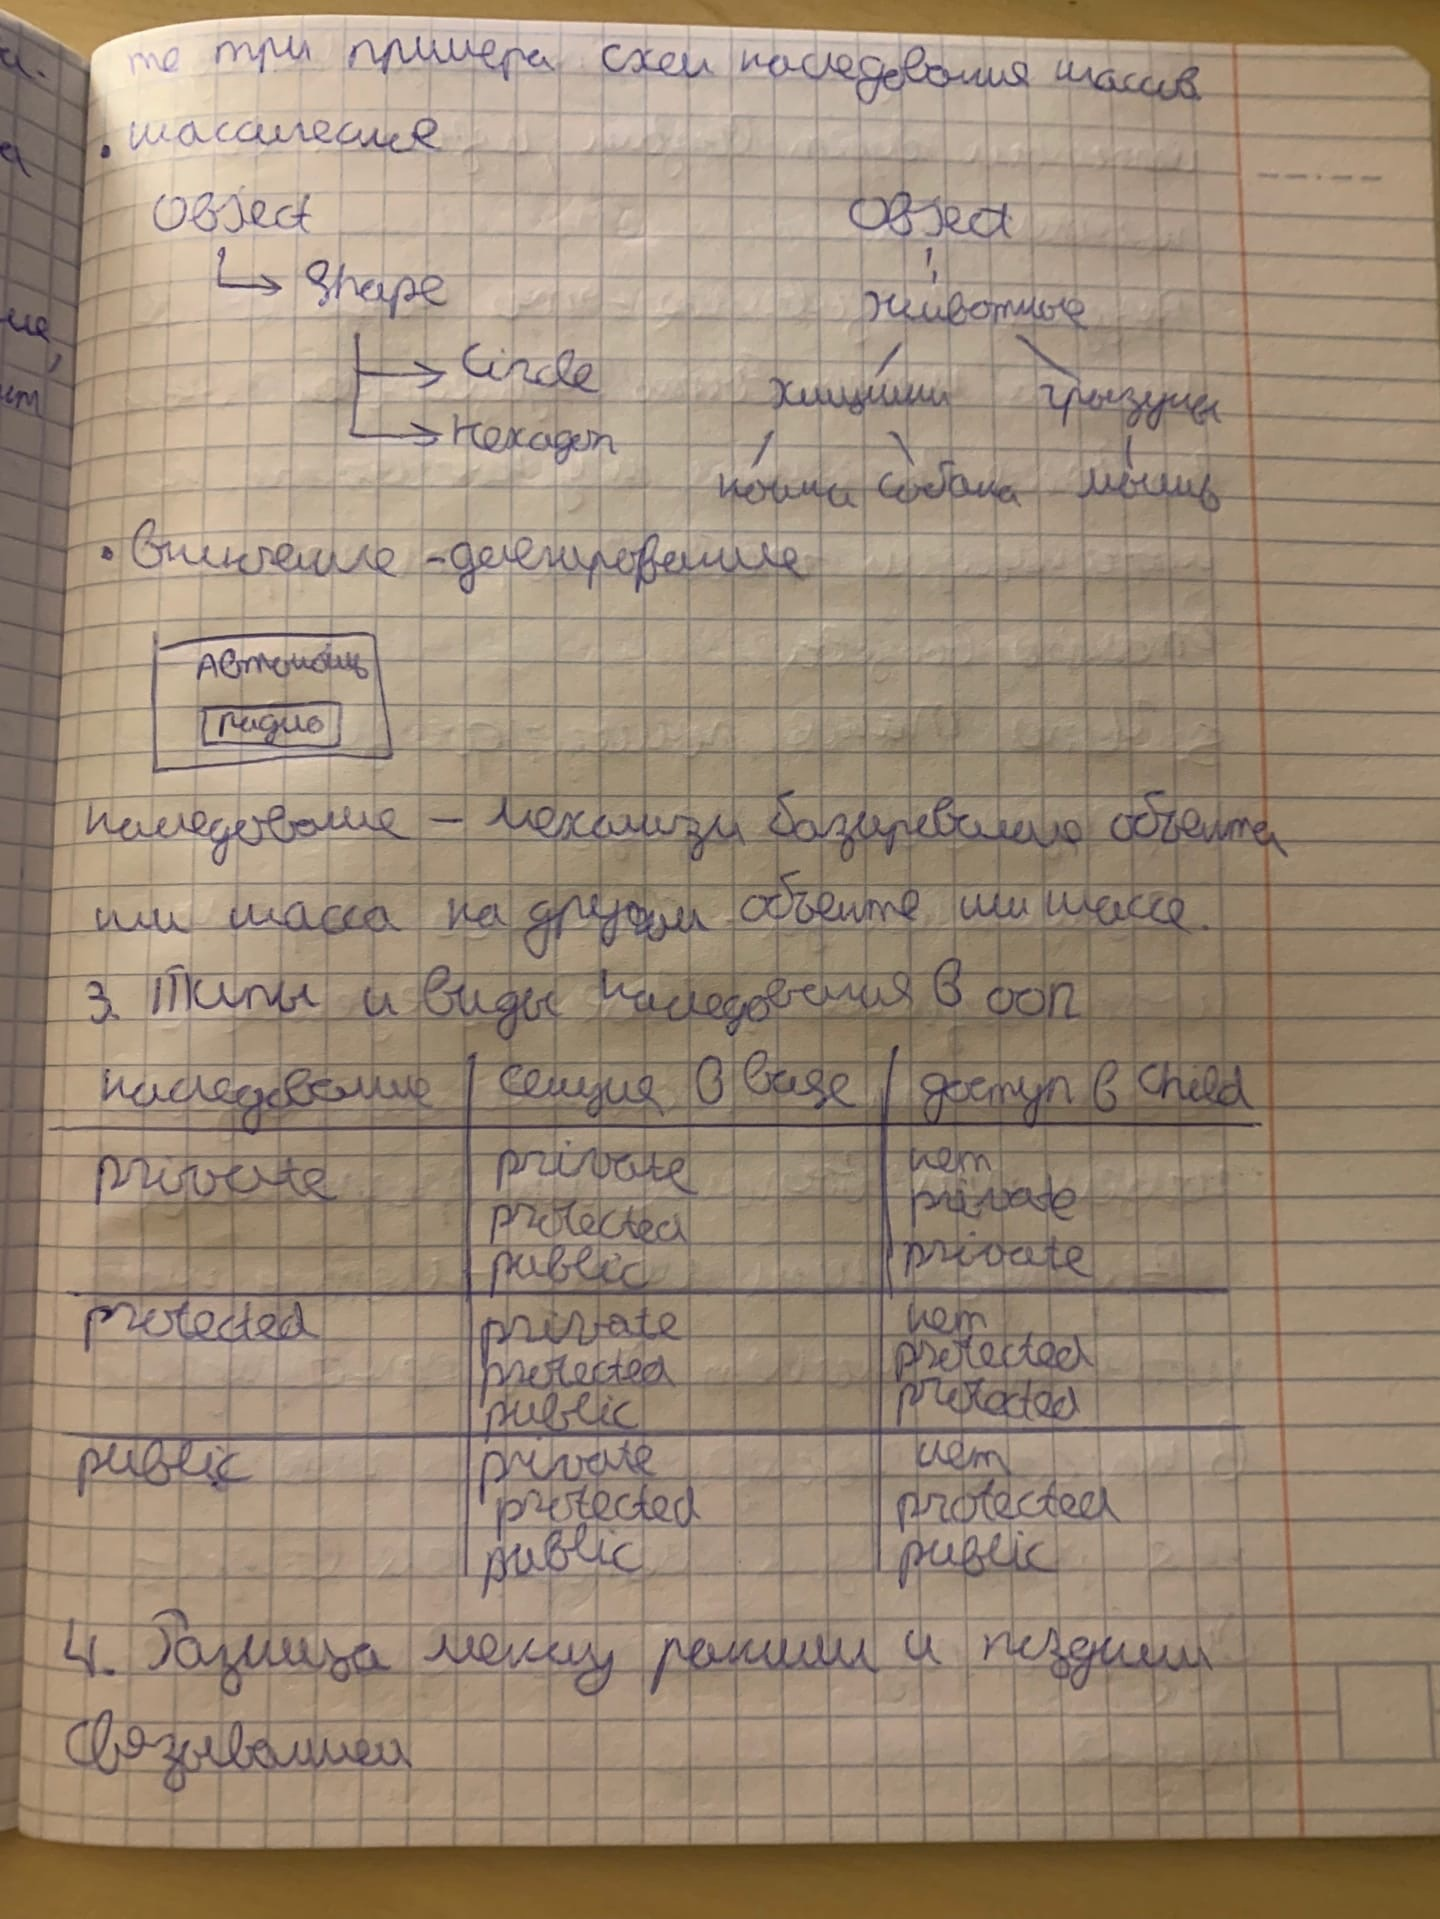 те три примера схем наследования классов.
• классическая
Object
Shape
Circle
Hexagon
Object
Животные
хищники грызуны
кошка собака мышь
• Включение-делегирование
Автомобиль
радио
наследование – механизм базирование объекта
или класса на другом объекте или классе.
3. Типы и виды наследования в ООП
наследование секция в Base доступ в child
private private нет
protected private
public private
protected private нет
protected protected
public protected
public private нет
protected protected
public public
4. Разница между ранним и поздним
связыванием